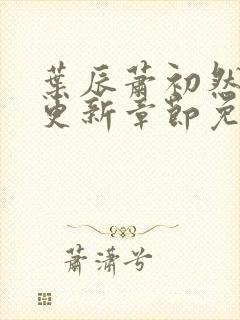 葉辰蕭初然
更新章節免
蕭瀟兮